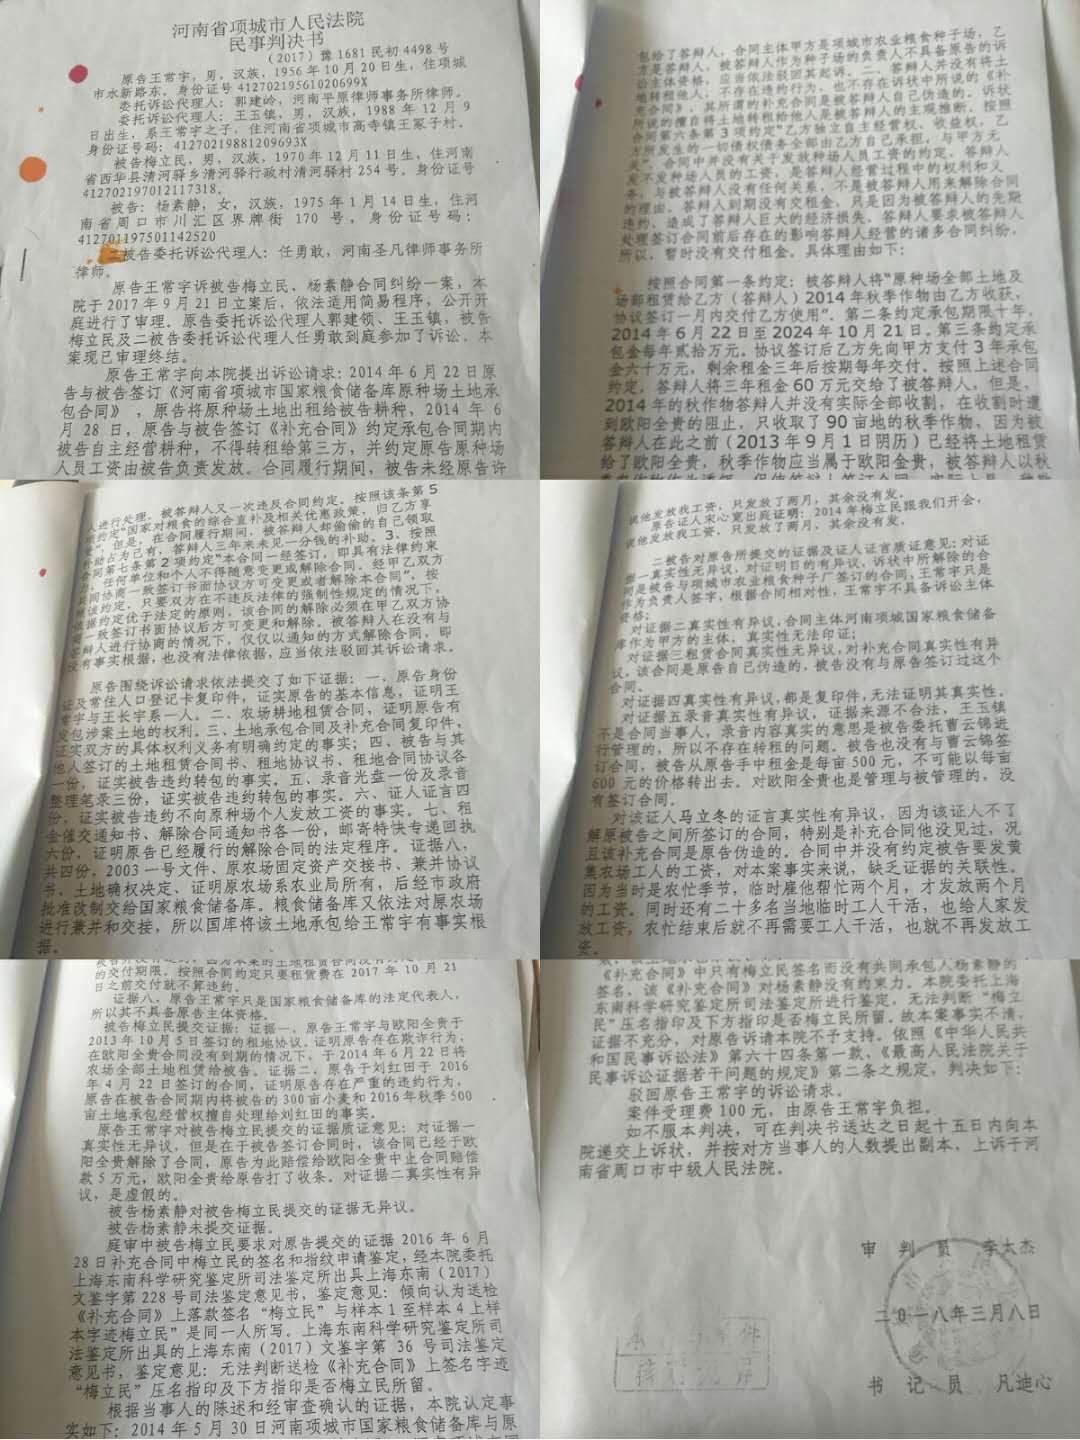 河南省项城市人民法院
民事判决书
（2017）豫1681民初4498号
原告王常宇，男，汉族，1956年10月20日生，住项城
市水新路东。身份证号41270219561020699X
委托诉讼代理人：郭建岭，河南平原律师事务所律师。
委托诉讼代理人：王玉镇，男，汉族，1988年12月9
日出生，系王常宇之子，住河南省项城市高寺镇王冢子村。
身份证号码：41270219881209693X
被告梅立民，男，汉族，1970年12月11日生，住河南
省西华县清河驿乡清河驿行政村清河驿村254号。身份证号
412702197012117318。
被告：杨素静，女，汉族，1975年1月14日生，住河
南省周口市川汇区界牌街170号，身份证号码：
412701197501142520
二被告委托诉讼代理人：任勇敢，河南圣凡律师事务所
律师。
原告王常宇诉被告梅立民、杨素静合同纠纷一案，本
院于2017年9月21日立案后，依法适用简易程序，公开开
庭进行了审理。原告委托诉讼代理人郭建领、王玉镇，被告
梅立民及二被告委托诉讼代理人任勇敢到庭参加了诉讼。本
案现已审理终结。
原告王常宇向本院提出诉讼请求：2014年6月22日原
告与被告签订《河南省项城市国家粮食储备库原种场土地承
包合同》，原告将原种场土地出租给被告耕种，2014年6
月28日，原告与被告签订《补充合同》约定承包合同期内
被告自主经营耕种，不得转租给第三方，并约定原告原种场
人员工资由被告负责发放。合同履行期间，被告未经原告许
包给了答辩人，合同主体甲方是项城市农业粮食种子场，乙
方是答辩人，被答辩人作为种子场的负责人不具备原告的诉
讼主体资格，应当依法驳回其起诉。二、答辩人并没有将土
地转租他人，不存在违约行为，也不存在诉状中所说的《补
充合同》，其所谓的补充合同是被答辩人自己伪造的。诉状
所说的擅自将土地转租给他人是被答辩人的主观推断。按照
合同第六条第3项约定“乙方独立自主经营权、收益权，乙
方所发生的一切债权债务全部由乙方自己承担，与甲方无
关”，合同中并没有关于发放种场人员工资的约定。答辩人
发不发种场人员的工资，是答辩人经营过程中的权利和义
务，与被答辩人没有任何关系，不是被答辩人用来解除合同
的理由。答辩人到期没有交租金，只是因为被答辩人的先期
违约，造成了答辩人巨大的经济损失，答辩人要求被答辩人
处理签订合同前后存在的影响答辩人经营的诸多合同纠纷，
所以，暂时没有交付租金。具体理由如下：
按照合同第一条约定：被答辩人将“原种场全部土地及
场部租赁给乙方（答辩人）2014年秋季作物由乙方收获，
协议签订一月内交付乙方使用”。第二条约定承包期限十年，
2014年6月22日至2024年10月21日。第三条约定承
包金每年贰拾万元。协议签订后乙方先向甲方支付3年承包
金六十万元，剩余租金三年后按期每年交付。按照上述合同
约定，答辩人将三年租金60万元交给了被答辩人，但是，
2014年的秋作物答辩人并没有实际全部收割，在收割时遭
到欧阳全贵的阻止，只收取了90亩地的秋季作物，因为被
答辩人在此之前（2013年9月1日阴历）已经将土地租赁
给了欧阳全贵，秋季作物应当属于欧阳金贵，被答辩人以秋
人进行处理，被答辩人又一次违反合同约定。按照该条第5
项约定“国家对粮食的综合直补及相关优惠政策，归乙方享
受”，但是，在合同履行期间，被答辩人却偷偷的自己领取
补贴占为己有，答辩人三年来未见一分钱的补助。3、按照
合同第七条第2项约定“本合同一经签订，即具有法律约束
力，任何单位和个人不得随意变更或解除合同。经甲乙双方
共同协商一致签订书面协议方可变更或者解除本合同”，按
照该约定，只要双方在不违反法律的强制性规定的情况下，
依据约定优于法定的原则，该合同的解除必须在甲乙双方协
商一致签订书面协议后方可变更和解除。被答辩人在没有与
答辩人进行协商的情况下，仅仅以通知的方式解除合同，即
没有事实根据，也没有法律依据，应当依法驳回其诉讼请求。
原告围绕诉讼请求依法提交了如下证据：一、原告身份
证及常住人口登记卡复印件，证实原告的基本信息，证明王
常宇与王长宇系一人。二、农场耕地租赁合同，证明原告有
发包涉案土地的权利。三、土地承包合同及补充合同复印件，
证实双方的具体权利义务有明确约定的事实；四、被告与其
他人签订的土地租赁合同书、租地协议书、租地合同协议各
一份，证实被告违约转包的事实。五、录音光盘一份及录音
整理笔录三份，证实被告违约转包的事实。六、证人证言四
份，证实被告违约不向原种场个人发放工资的事实。七、租
金催交通知书、解除合同通知书各一份，邮寄特快专递回执
六份，证明原告已经履行的解除合同的法定程序。证据八，
共四份，2003一号文件、原农场固定资产交接书、兼并协议
书、土地确权决定、证明原农场系农业局所有，后经市政府
批准改制交给国家粮食储备库。粮食储备库又依法对原农场
进行兼并和交接，所以国库将该土地承包给王常宇有事实根
据。
说他发放我工资，只发放了两月，其余没有发。
原告证人宋心宽出庭证明：2014年梅立民跟我们开会，
说他发放我工资，只发放了两月，其余没有发。
二被告对原告所提交的证据及证人证言质证意见：对证
据一真实性无异议，对证明目的有异议，诉状中所解除的合
同是被告与项城市农业粮食种子厂签订的合同，王常宇只是
作为负责人签字，根据合同相对性，王常宇不具备诉讼主体
资格；
对证据二真实性有异议，合同主体河南项城国家粮食储备
库作为甲方的主体，真实性无法印证；
对证据三租赁合同真实性无异议，对补充合同真实性有异
议，该合同是原告自己伪造的，被告没有与原告签订过这个
合同。
对证据四真实性有异议，都是复印件，无法证明其真实性。
对证据五录音真实性有异议。证据来源不合法，王玉镇
不是合同当事人，录音内容真实的意思是被告委托曹云锦进
行管理的，所以不存在转租的问题。被告也没有与曹云锦签
订合同，被告从原告手中租金是每亩500元，不可能以每亩
600元的价格转出去。对欧阳全贵也是管理与被管理的，没
有签订合同。
对该证人马立冬的证言真实性有异议，因为该证人不了
解原被告之间所签订的合同，特别是补充合同他没见过，况
且该补充合同是原告伪造的。合同中并没有约定被告要发黄
集农场工人的工资，对本案事实来说，缺乏证据的关联性。
因为当时是农忙季节，临时雇他帮忙两个月，才发放两个月
的工资。同时还有二十多名当地临时工人干活，也给人家发
放工资，农忙结束后就不再需要工人干活，也就不再发放工
资。
的交付期限。按照合同约定只要租赁费在2017年10月21
日之前交付就不算违约。
证据八，原告王常宇只是国家粮食储备库的法定代表人，
所以其不具备原告主体资格。
被告梅立民提交证据：证据一，原告王常宇与欧阳全贵于
2013年10月5日签订的租地协议。证明原告存在欺诈行为，
在欧阳全贵合同没有到期的情况下，于2014年6月22日将
农场全部土地租赁给被告。证据二，原告于刘红田于2016
年4月22日签订的合同，证明原告存在严重的违约行为，
原告在被告合同期内将被告的300亩小麦和2016年秋季500
亩土地承包经营权擅自处理给刘红田的事实。
原告王常宇对被告梅立民提交的证据质证意见：对证据一
真实性无异议，但是在于被告签订合同时，该合同已经于欧
阳全贵解除了合同，原告为此赔偿给欧阳全贵中止合同赔偿
款5万元，欧阳全贵给原告打了收条。对证据二真实性有异
议，是虚假的。
被告杨素静对被告梅立民提交的证据无异议。
被告杨素静未提交证据。
庭审中被告梅立民要求对原告提交的证据2016年6月
28日补充合同中梅立民的签名和指纹申请鉴定，经本院委托
上海东南科学研究鉴定所司法鉴定所出具上海东南（2017）
文鉴字第228号司法鉴定意见书，鉴定意见：倾向认为送检
《补充合同》上落款签名“梅立民”与样本1至样本4上样
本字迹梅立民”是同一人所写。上海东南科学研究鉴定所司
法鉴定所出具的上海东南（2017）文鉴字第36号司法鉴定
意见书，鉴定意见：无法判断送检《补充合同》上签名字迹
“梅立民”压名指印及下方指印是否梅立民所留。
根据当事人的陈述和经审查确认的证据，本院认定事
实如下：2014年5月30日河南项城市国家粮食储备库与原
《补充合同》中只有梅立民签名而没有共同承包人杨素静的
签名，该《补充合同》对杨素静没有约束力。本院委托上海
东南科学研究鉴定所司法鉴定所进行鉴定，无法判断“梅立
民”压名指印及下方指印是否梅立民所留。故本案事实不清，
证据不充分，对原告诉请本院不予支持。依照《中华人民共
和国民事诉讼法》第六十四条第一款，《最高人民法院关于
民事诉讼证据若干问题的规定》第二条之规定，判决如下：
驳回原告王常宇的诉讼请求。
案件受理费100元，由原告王常宇负担。
如不服本判决，可在判决书送达之日起十五日内向本
院递交上诉状，并按对方当事人的人数提出副本，上诉于河
南省周口市中级人民法院。
审判员 李太杰
二〇一八年三月八日
书记员 凡迪心